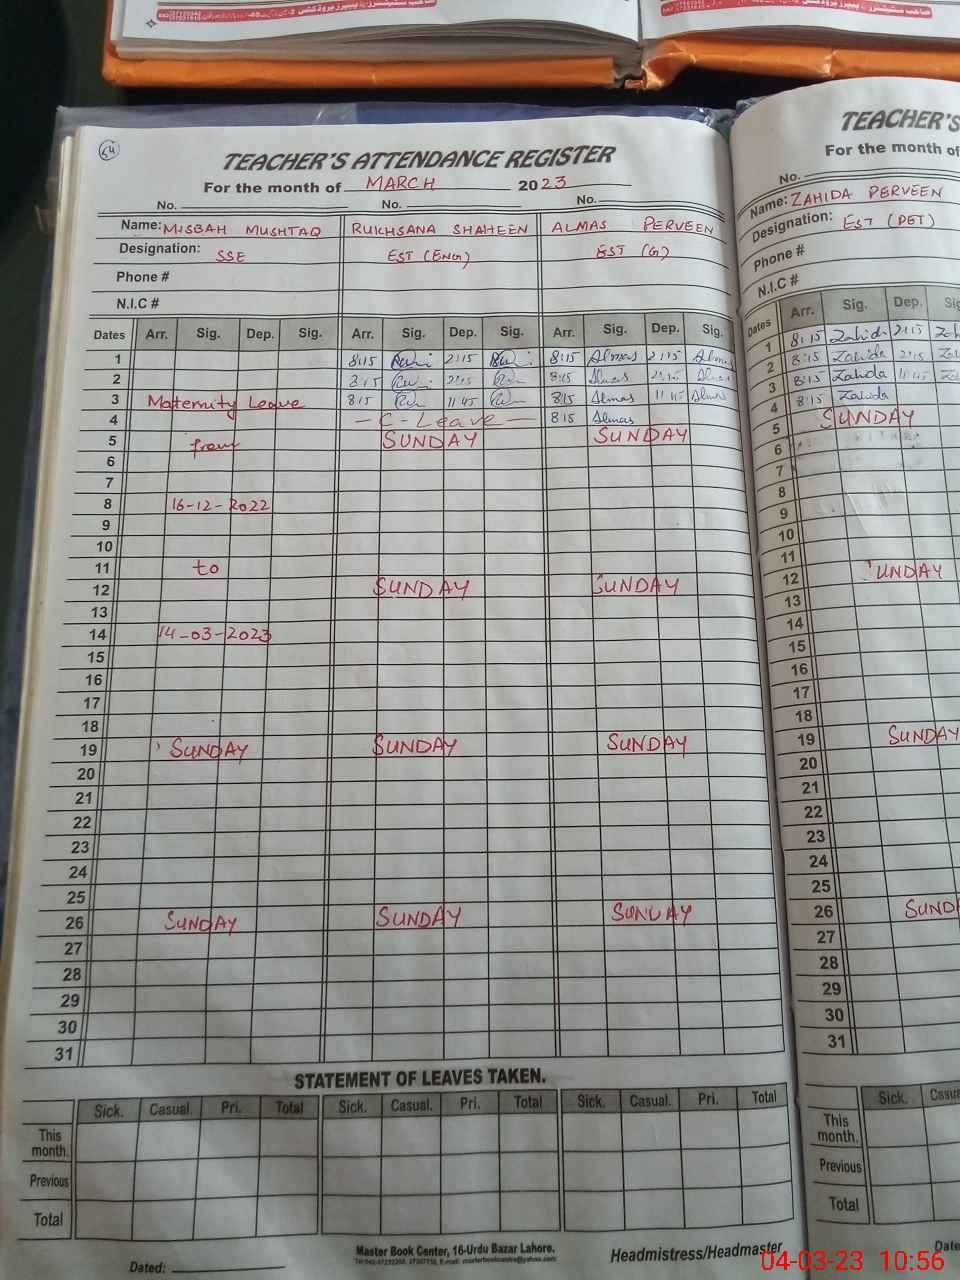 54
TEACHER'S ATTENDANCE REGISTER
For the month of MARCH 2023
No. No. No.
Name: MISBAH MUSHTAQ RUKHSANA SHAHEEN ALMAS PERVEEN
Designation: SSE EST (ENG) EST (G)
Phone #
N.I.C #
Dates Arr. Sig. Dep. Sig. Arr. Sig. Dep. Sig. Arr. Sig. Dep. Sig.
1 8:15 2:15 8:15 Almas 2:15 Almas
2 8:15 2:15 8:15 Almas 2:15 Almas
3 Maternity Leave 8:15 11:45 8:15 Almas 11:45 Almas
4 - C-Leave - 8:15 Almas
5 from SUNDAY SUNDAY
6
7
8 16-12-2022
9
10
11 to
12 SUNDAY SUNDAY
13
14 14-03-2023
15
16
17
18
19 SUNDAY SUNDAY SUNDAY
20
21
22
23
24
25
26 SUNDAY SUNDAY SUNDAY
27
28
29
30
31
STATEMENT OF LEAVES TAKEN.
Sick. Casual. Pri. Total Sick. Casual. Pri. Total Sick. Casual. Pri. Total
This month.
Previous
Total
Dated:
Master Book Center, 16-Urdu Bazar Lahore.
Headmistress/Headmaster
TEACHER'S
For the month of
No.
Name: ZAHIDA PERVEEN
Designation: EST (PET)
Phone #
N.I.C #
Dates Arr. Sig. Dep. Sig
1 8:15 Zahida 2:15
2 8:15 Zahida 2:15
3 8:15 Zahida 11:45
4 8:15 Zahida
5 SUNDAY
6
7
8
9
10
11
12 SUNDAY
13
14
15
16
17
18
19 SUNDAY
20
21
22
23
24
25
26 SUND
27
28
29
30
31
Sick. Casua
This month.
Previous
Total
Date
04-03-23 10:56